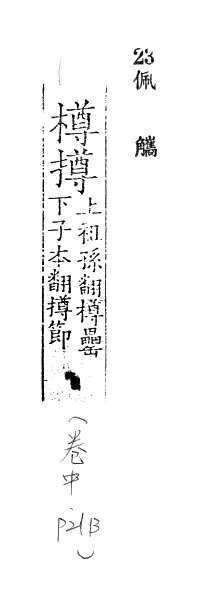 23佩觿
樽撙
上祖孫翻樽罍
下子本翻撙節
(卷中P21B)